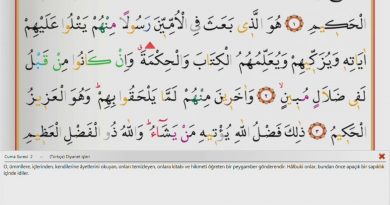 الْحَكِيمِ ﴿١﴾ هُوَ الَّذِي بَعَثَ فِي الْاُمِّيّ۪نَ رَسُولًا مِنْهُمْ يَتْلُوا عَلَيْهِمْ
اٰيَاتِه۪ وَيُزَكّ۪يهِمْ وَيُعَلِّمُهُمُ الْكِتَابَ وَالْحِكْمَةَۗ وَاِنْ كَانُوا مِنْ قَبْلُ
لَف۪ي ضَلَالٍ مُب۪ينٍۙ ﴿٢﴾ وَاٰخَر۪ينَ مِنْهُمْ لَمَّا يَلْحَقُوا بِهِمْۜ وَهُوَ الْعَز۪يزُ
الْحَك۪يمُ ﴿٣﴾ ذٰلِكَ فَضْلُ اللّٰهِ يُؤْت۪يهِ مَنْ يَشَٓاءُۜ وَاللّٰهُ ذُو الْفَضْلِ الْعَظ۪يمِ
Cuma Suresi 2 - (Türkçe) Diyanet işleri
O, ümmîlere, içlerinden, kendilerine âyetlerini okuyan, onları temizleyen, onlara kitabı ve hikmeti öğreten bir peygamber gönderendir. Hâlbuki onlar, bundan önce apaçık bir sapıklık
içinde idiler.